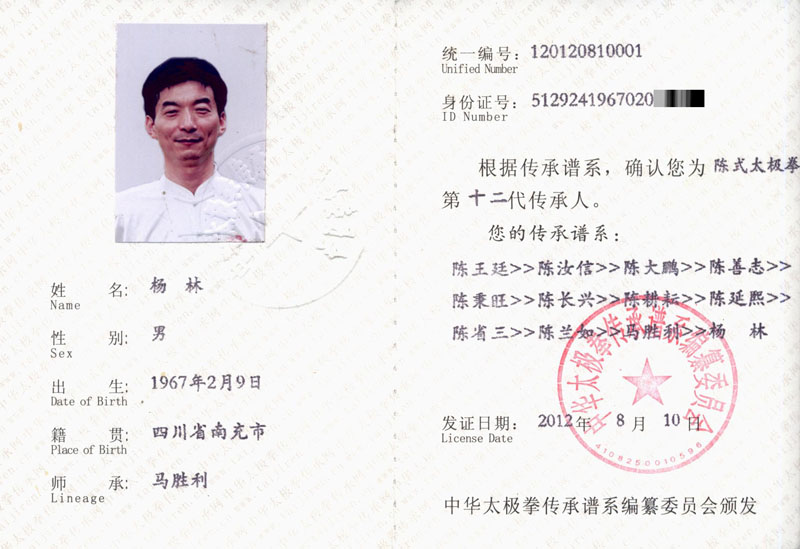 姓 名: 杨 林
Name
性 别: 男
Sex
出 生: 1967年2月9日
Date of Birth
籍 贯: 四川省南充市
Place of Birth
师 承: 马胜利
Lineage
统一编号: 120120810001
Unified Number
身份证号: 5129241967020
ID Number
根据传承谱系，确认您为 陈式太极拳
第 十二代传承人。
您的传承谱系：
陈王廷>>陈汝信>>陈大鹏>>陈善志>>
陈秉旺>>陈长兴>>陈耕耘>>陈延熙>>
陈省三>>陈兰如>>马胜利>>杨 林
中华太极拳传承谱系编纂委员会
4108250010596
发证日期: 2012年 8月 10日
License Date
中华太极拳传承谱系编纂委员会颁发